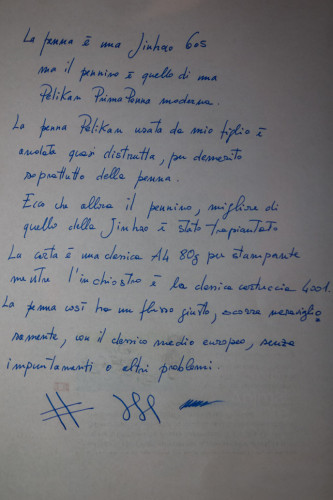 La penna è una Jinhao 605
ma il pennino è quello di una
Pelikan Prima Penna moderna.
La penna Pelikan usata da mio figlio è
andata quasi distrutta, per demerito
soprattutto della penna.
Ecco che allora il pennino, migliore di
quello della Jinhao è stato trapiantato
La carta è una classica A4 80g per stampante
mentre l'inchiostro è la classica cartuccia 4001.
La penna così ha un flusso giusto, scorre meraviglio
samente, con il classico medio europeo, senza
impuntamenti o altri problemi.